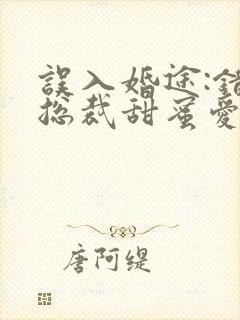 誤入婚途:錯
总裁甜蜜愛
唐阿缇